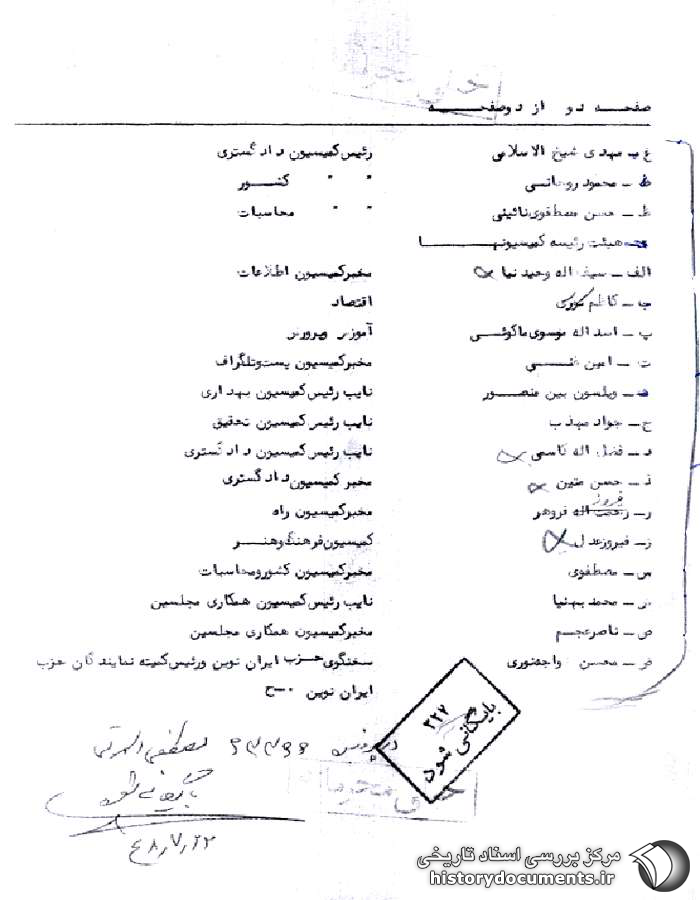 صفحه دو از دوصفحه
ع ـ مهدی شیخ الاسلامی رئیس کمیسیون دادگستری
ط ـ محمود روحانی " " کشور
ظ ـ حسن مصطفوی نائینی " " محاسبات
هیئت رئیسه کمیسیونها
الف ـ سیف اله وحید نیا مخبرکمیسیون اطلاعات
ب ـ کاظم کورس اقتصاد
پ ـ اسد اله موسوی ماکوئی آموزش وپرورش
ت ـ امین مخبرکمیسیون پست وتلگراف
ث ـ ویلسون بین منصور نایب رئیس کمیسیون بهداری
ج ـ جواد مهذب نایب رئیس کمیسیون تحقیق
د ـ فضل اله کاسمی نایب رئیس کمیسیون دادگستری
ذ ـ حسن متین مخبر کمیسیون دادگستری
ر ـ اله فروهر مخبرکمیسیون راه
ز ـ فیروز عدل کمیسیون فرهنگ وهنر
س ـ مصطفوی مخبرکمیسیون کشورومحاسبات
ش ـ محمد بهنیا نایب رئیس کمیسیون همکاری مجلسین
ص ـ ناصر عجم مخبرکمیسیون همکاری مجلسین
ض ـ محسن خواجه نوری سخنگوی حزب ایران نوین ورئیس کمیته نمایندگان حزب
ایران نوین
۳۲۲
بایگانی شود
خیلی محرمانه
۴۸٫۷٫۲۲
مرکز بررسی اسناد تاریخی
historydocuments.ir